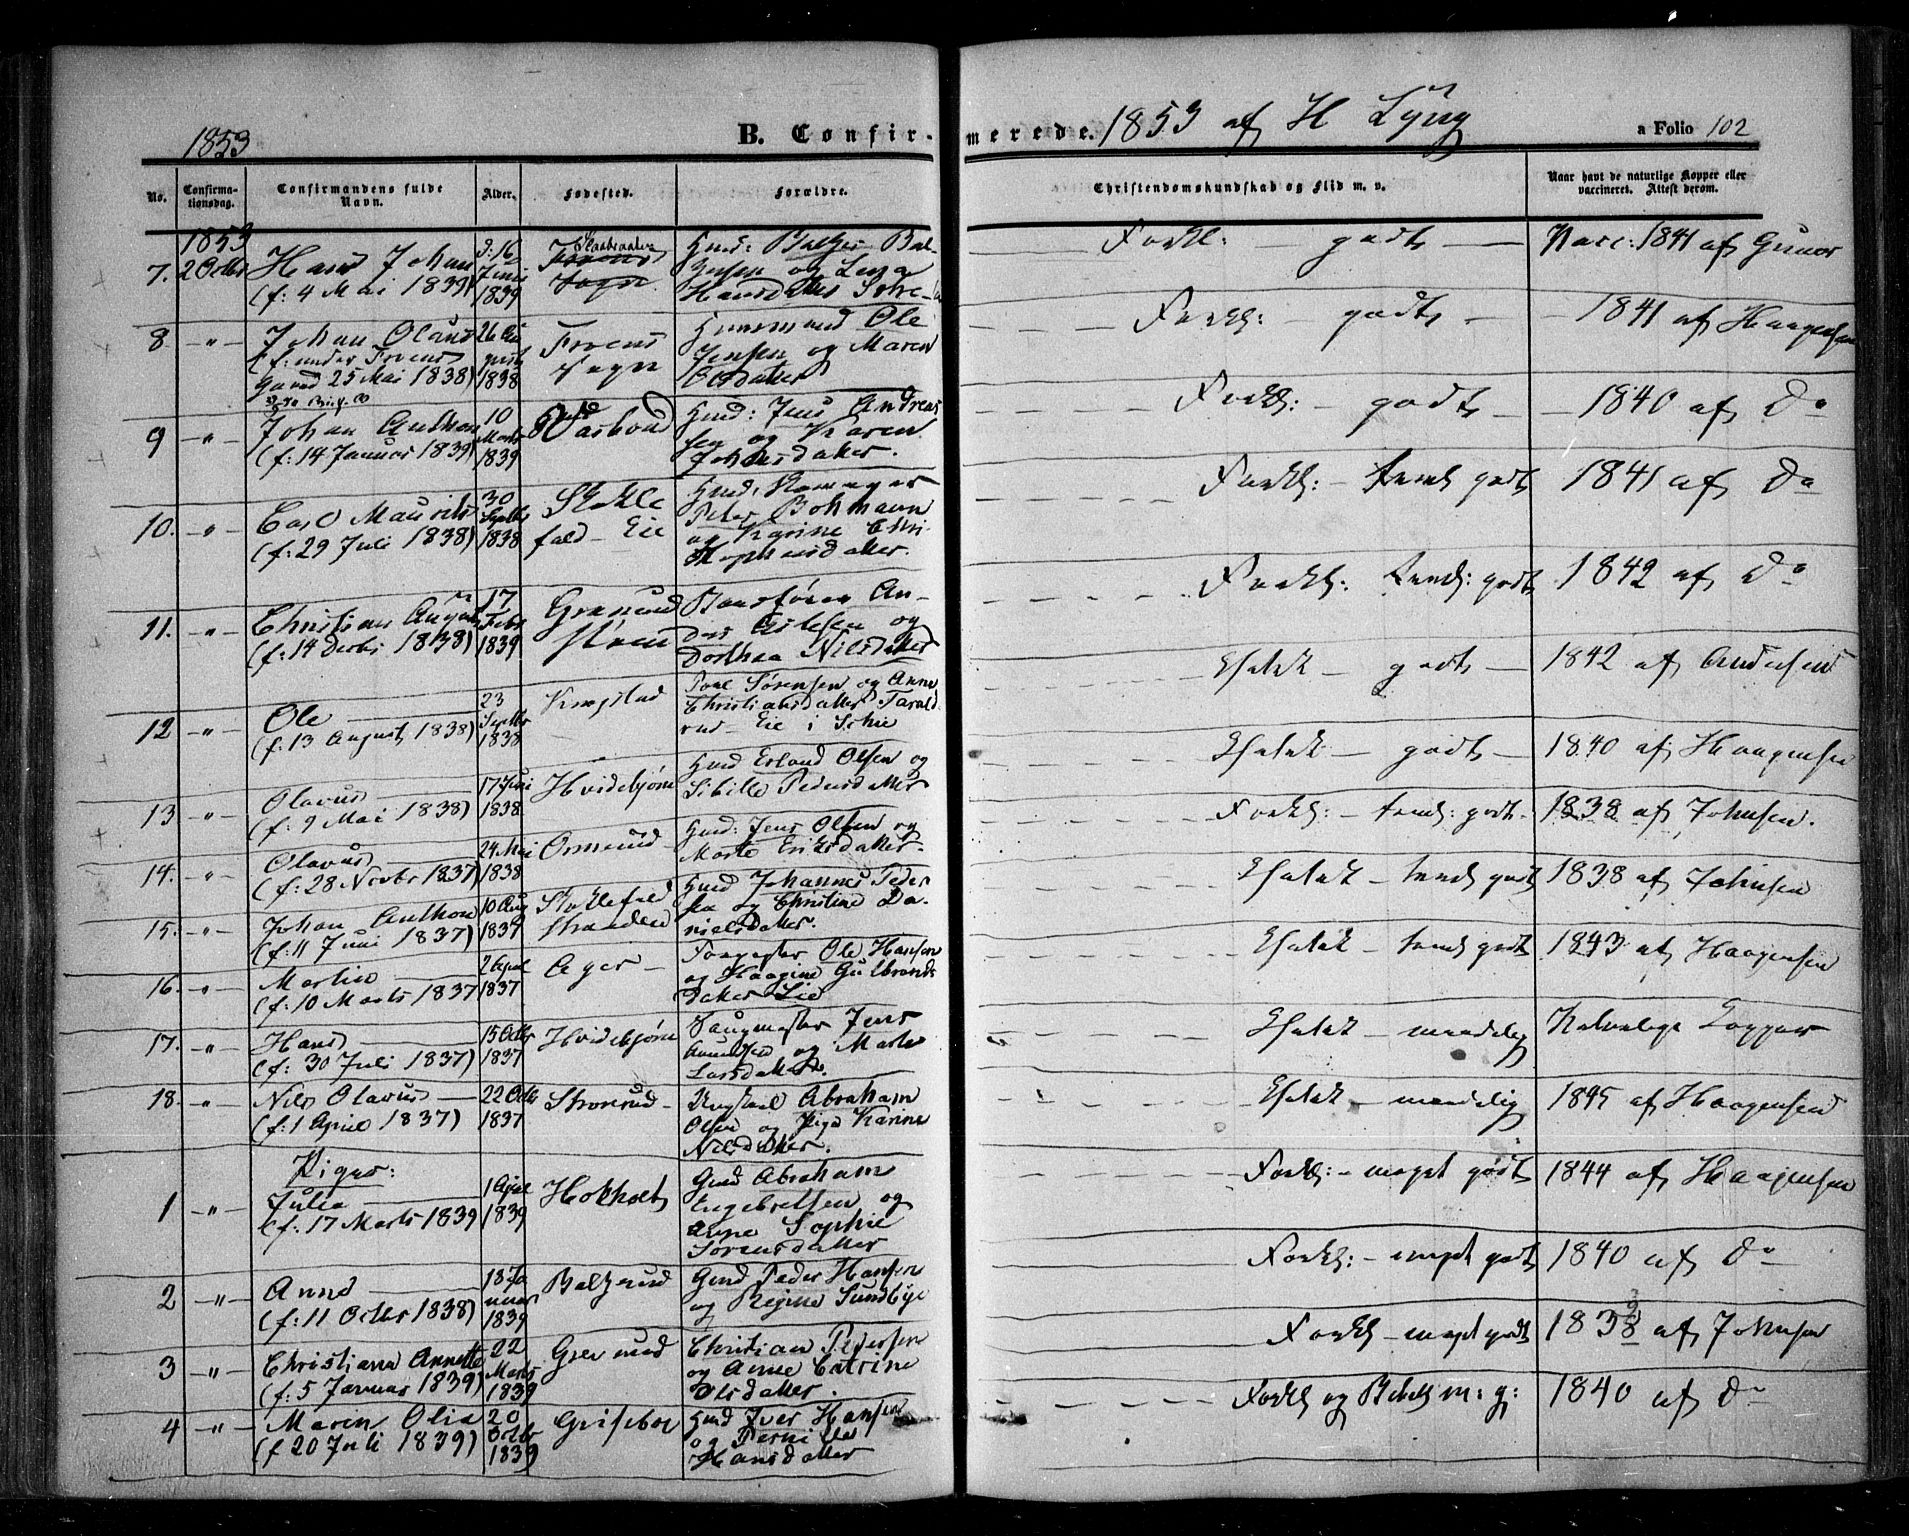 1853
B. Confir-
merede. 1853 af H Lyng
a Folio 102
No.
Confirma-
tionsdag.
Confirmandens fulde
Navn.
Alder.
Fødested.
Forældre.
Christendomskundskab og Flid m. v.
Naar havt de naturlige Kopper eller
vaccineret. Attest derom.
1853
7. 2 Octbr
Hans Johan
(f: 4 Mai 1839)
d: 16
Juni
1839
Froens
Sogn
Gmd: Baltzer Bal-
zersen og Lena
Hansdatter
Forkl: godt
Vacc: 1841 af Gunor
8 - " -
Johan Olaus
(f: under Froens
Gaard 25 Mai 1838)
26 Au
gust
1838
Froens
Sogn
Huusmand Ole
Jensen og Maren
Olsdatter
Forkl: - godt -
1841 af Haagensen
9 - " -
Johan Anthon
(f: 14 Januar 1839)
10
Marts
1839
Gmd: Jens Andreas
sen og Karen
Johansdatter.
Forkl: - godt
- 1840 af Do
10. - " -
Carl Maurits
(f: 29 Juli 1838)
30
Septbr
1838
Stokle
fald - Eie
Peter Bohmann
og Karine Chri-
stophersdatter.
Forkl: - temmel godt
1841 af Do
11. - " -
Christian August
(f: 14 Decbr 1838)
17
Febr
1839
An-
ders Aslesen og
Dorthea Nilsdatter
Forkl: temel: godt
1842 af Do
12 - " -
Ole
(f: 13 August 1838)
23
Septbr
1838
Krogstad
Poul Sørensen og Anne
Christiansdatter Tarald
rud - Eie i
godt -
1842 af Andersen
13 - " -
Olavus
(f: 9 Mai 1838)
17 Juni
1838
Hvidebjørn
Gmd Erland Olsen og
Sibille Pedersdatter
godt -
1840 af Haagensen
14. - " -
Olavus
(f: 28 Novbr 1837)
24 Mai
1838
Ormerud
Gmd: Jens Olsen og
Marte Eriksdatter.
Forkl: - temel: godt
1838 af Johnsen.
15. - " -
Johan Anthon
(f: 11 Juni 1837)
10 Aug
1837
Stoklefald
stranden
Gmd Johannes Peder
sen og Christine Da-
nielsdatter.
temel godt
1838 af Johnsen
16. - " -
Martin
(f: 10 Marts 1837
2 April
1837
Ager -
Ole Hansen
og Haagine Gulbrands
datter Lie
temel godt
1843 af Haagensen
17. - " -
Hans
(f: 30 Juli 1837)
15 Octbr
1837
Hvidebjørn
Saugmester Jens
og Marte
Larsdatter.
- maadelig
Naturlige Kopper
18. - " -
Nils Olavus
(f: 1 April 1837)
22 Octbr
1837
Storerud -
Ungkarl Abraham
Olsen og Pige Karine
Nilsdatter.
- maadelig
1845 af Haagensen
Piger:
1 - " -
Julia
(f: 17 Marts 1839
1 April
1839
Hokholt
Gmd Abraham
Engebretsen og
Anne Sophie
Sørensdatter
Forkl: - meget godt
1844 af Haagensen
2 - " -
Anne
(f: 11 Octbr 1838)
18 Ja
nuar
1839
Balzerud
Gmd Peder Hansen
og Regine Sundbye
Forkl: - meget godt
1840 af Do
3 - " -
Christiana Annette
(f: 5 Januar 1839)
22
Marts
1839
Greverud
Christian Pedersen
og Anne Catrine
Olsdatter.
Forkl - meget godt
1838 af Johnsen
4 - " -
Maren Olia
(f 20 Juli 1839)
20
Octbr
1839
Grisebo
Gmd Iver Hansen
og Pernille
Hansdatter
Forkl og m: g:
1840 af Do